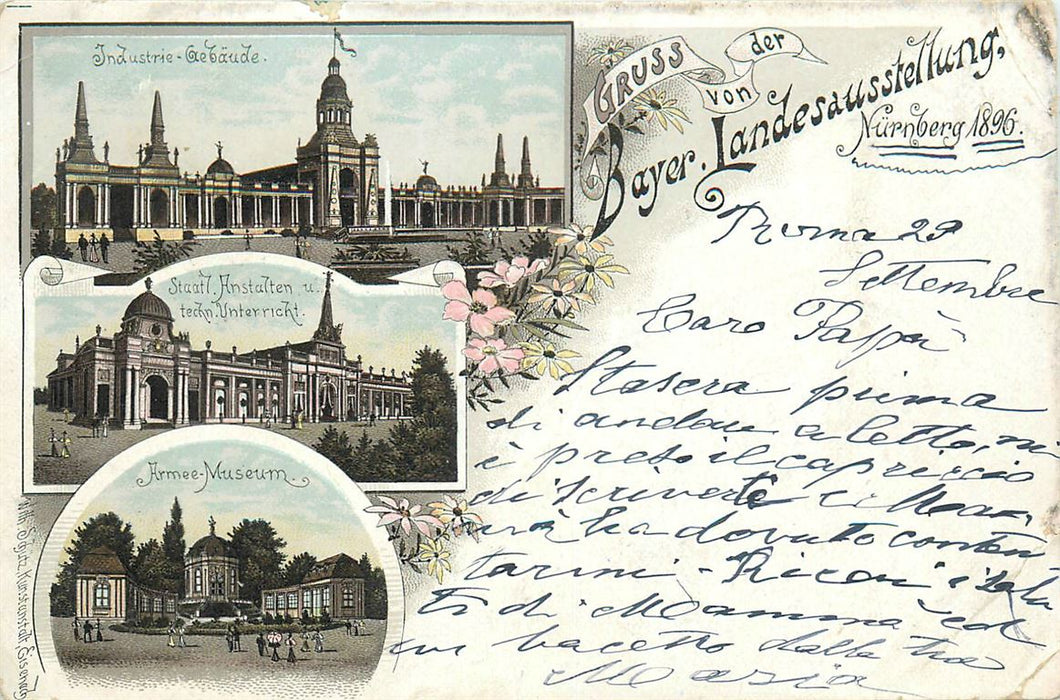 Industrie-Gebäude.
GRUSS von der
Bayer. Landesausstellung,
Nürnberg 1896.
Staatl. Anstalten u.
techn. Unterricht.
Armee-Museum.
Kunstanstalt
Roma 29
Settembre
Caro Papà
Stasera prima
di andare a letto, m
è preso il capriccio
di scriverti e Mam
mà ha dovuto conten
tarmi. Ricevi i salu
ti di Mamma ed
un bacetto dalla tua
Maria